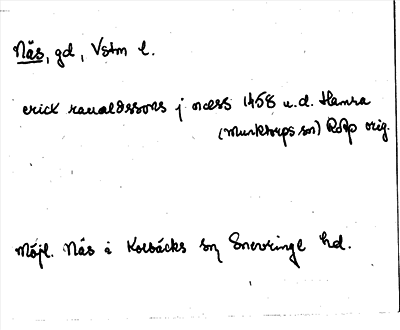 Näs, gd, Vstm l.
erick raualdssons j næss 1458 u.d. Hamra
(Munktorps sn) RApp orig.
Möjl. Näs i Kolbäcks sn Snevringe hd.